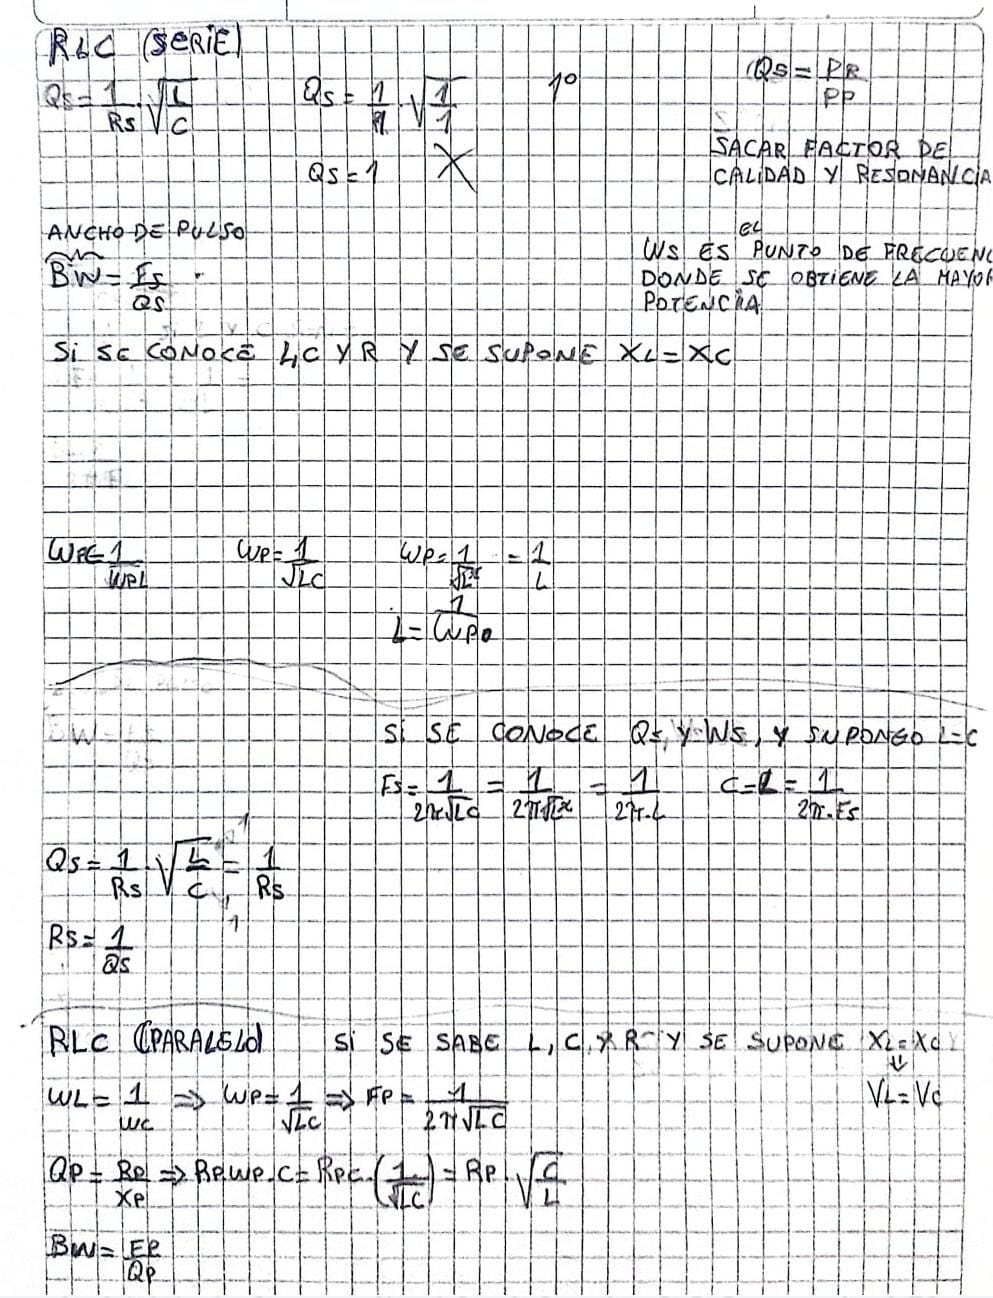 RLC (SERIE)
Qs = 1/Rs · √(L/C)    Qs = 1/1 · √(1/1)    1º    Qs = PR/PP
Qs = 1    X
SACAR FACTOR DE
CALIDAD Y RESONANCIA
ANCHO DE PULSO
BW = Fs/Qs
WS ES EL PUNTO DE FRECUENC
DONDE SE OBTIENE LA MAYOR
POTENCIA
SI SE CONOCE L,C Y R Y SE SUPONE XL = XC
WPC = 1/WPL    WP = 1/√LC    WP = 1/√L² = 1/L
L = 1/WP
SI SE CONOCE Qs, Y WS, Y SUPONGO L=C
Fs = 1/2π√LC = 1/2π√L² = 1/2π·L    C = L = 1/2π·Fs
Qs = 1/Rs · √(L/C) = 1/Rs
Rs = 1/Qs
RLC (PARALELO)    SI SE SABE L, C, Y R Y SE SUPONE XL = XC
⇓
WL = 1/WC ⇒ WP = 1/√LC ⇒ FP = 1/2π√LC    VL = VC
QP = RP/XP ⇒ RP.WP.C = RPC.(1/√LC) = RP · √(C/L)
BW = FP/QP